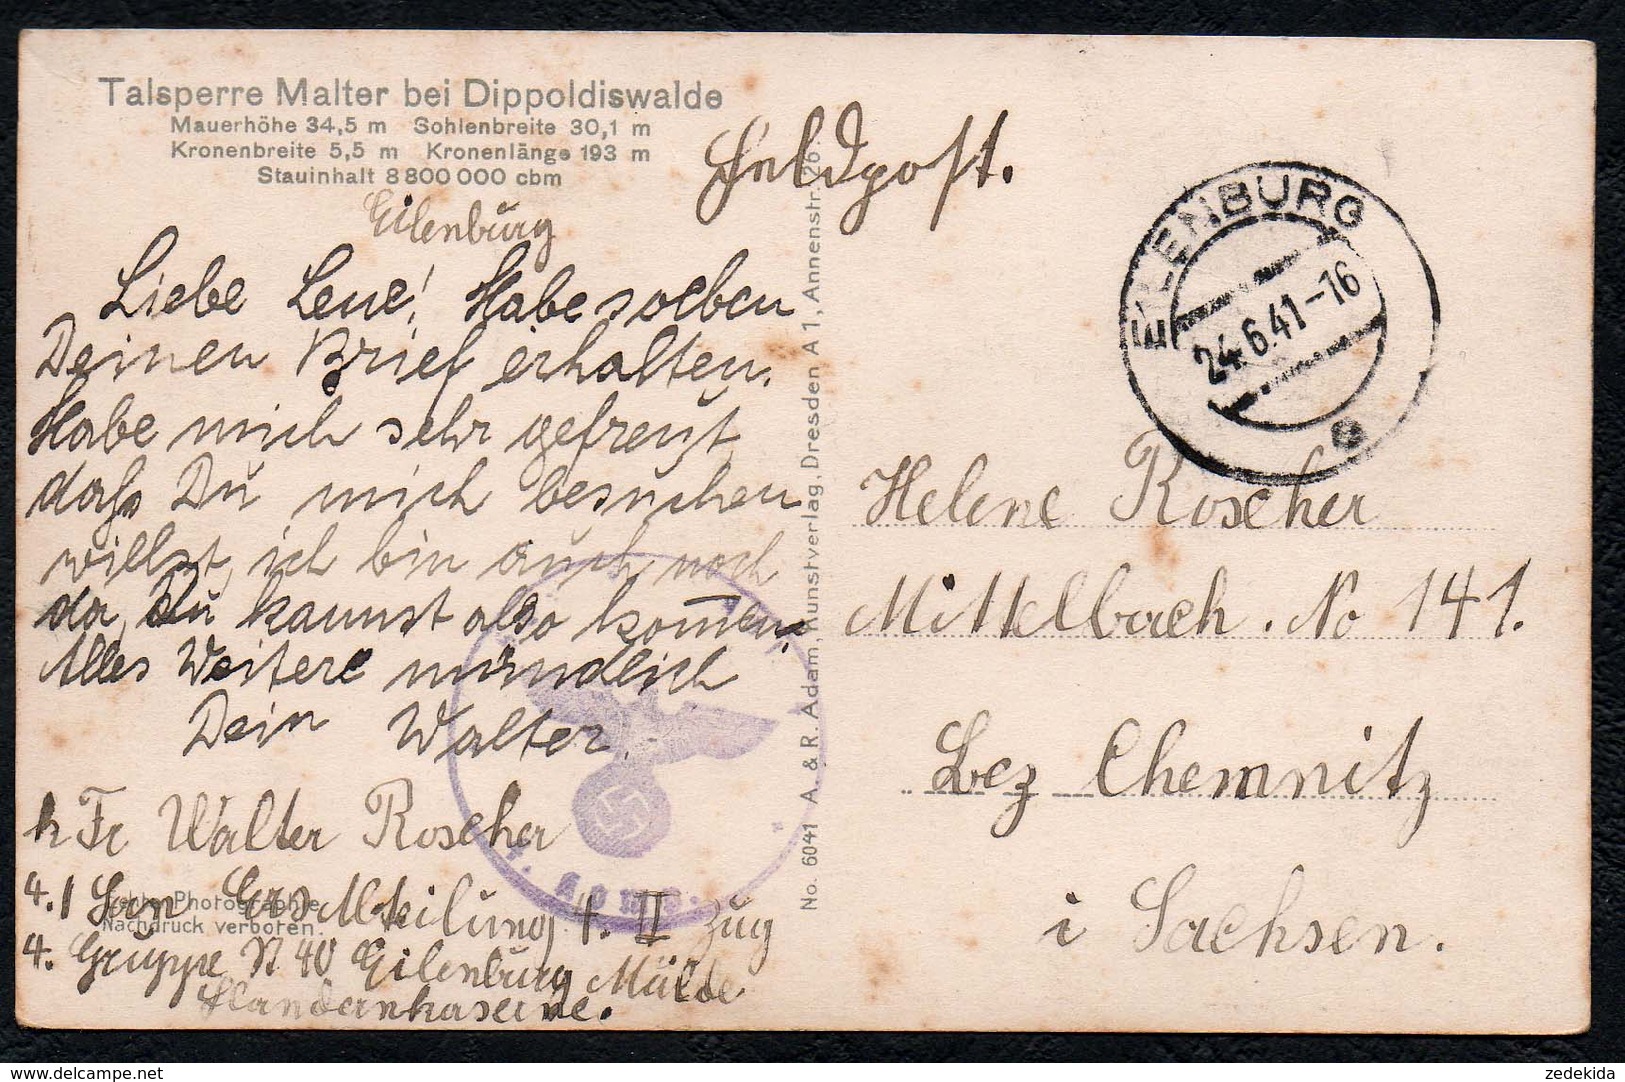 Talsperre Malter bei Dippoldiswalde
Mauerhöhe 34,5 m Sohlenbreite 30,1 m
Kronenbreite 5,5 m Kronenlänge 193 m
Stauinhalt 8 800 000 cbm
Feldpost.
Eilenburg
Liebe Lene! Habe soeben
Deinen Brief erhalten.
Habe mich sehr gefreut,
daß Du mich besuchen
willst, ich bin auch noch
da, Du kannst also kom̅en.
Alles Weitere mündlich
Dein Walter.
Fr Walter Roscher
4.1 San Ers Abteilung 4. II Zug
4. Gruppe St 40 Eilenburg Mulde
Flandernkaserne.
Echte Photographie
Nachdruck verboten.
No. 6041 A. & R. Adam, Kunstverlag, Dresden A 1, Annenstr. 26.
EILENBURG
24.6.41-16
e
Helene Roscher
Mittelbach. No 141.
Bez Chemnitz
i Sachsen.
delcampe.net
zedekida